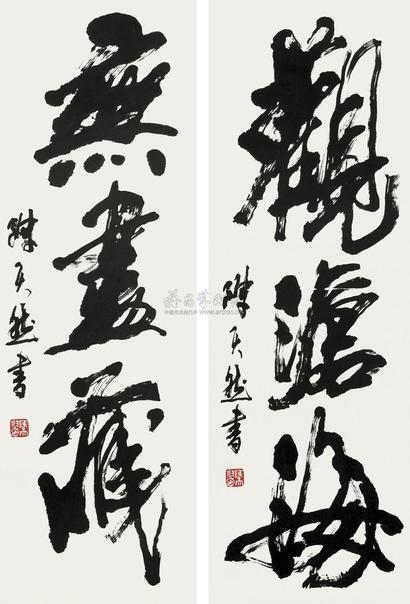 觀滄海
陳天然書
無盡藏
陳天然書